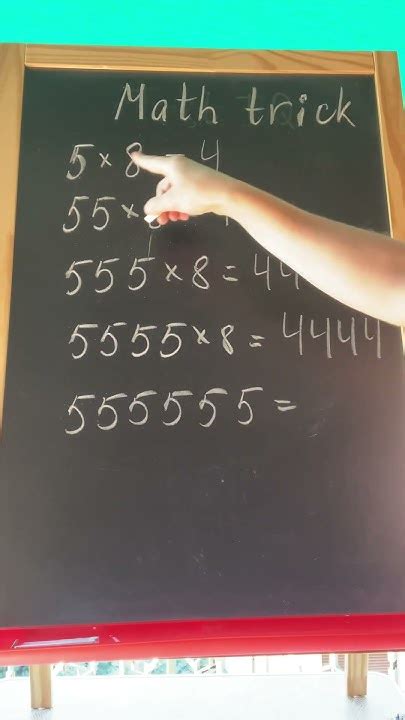 Math trick
5×8 = 4
55×
555×8 = 44
5555×8 = 4444
555555 =